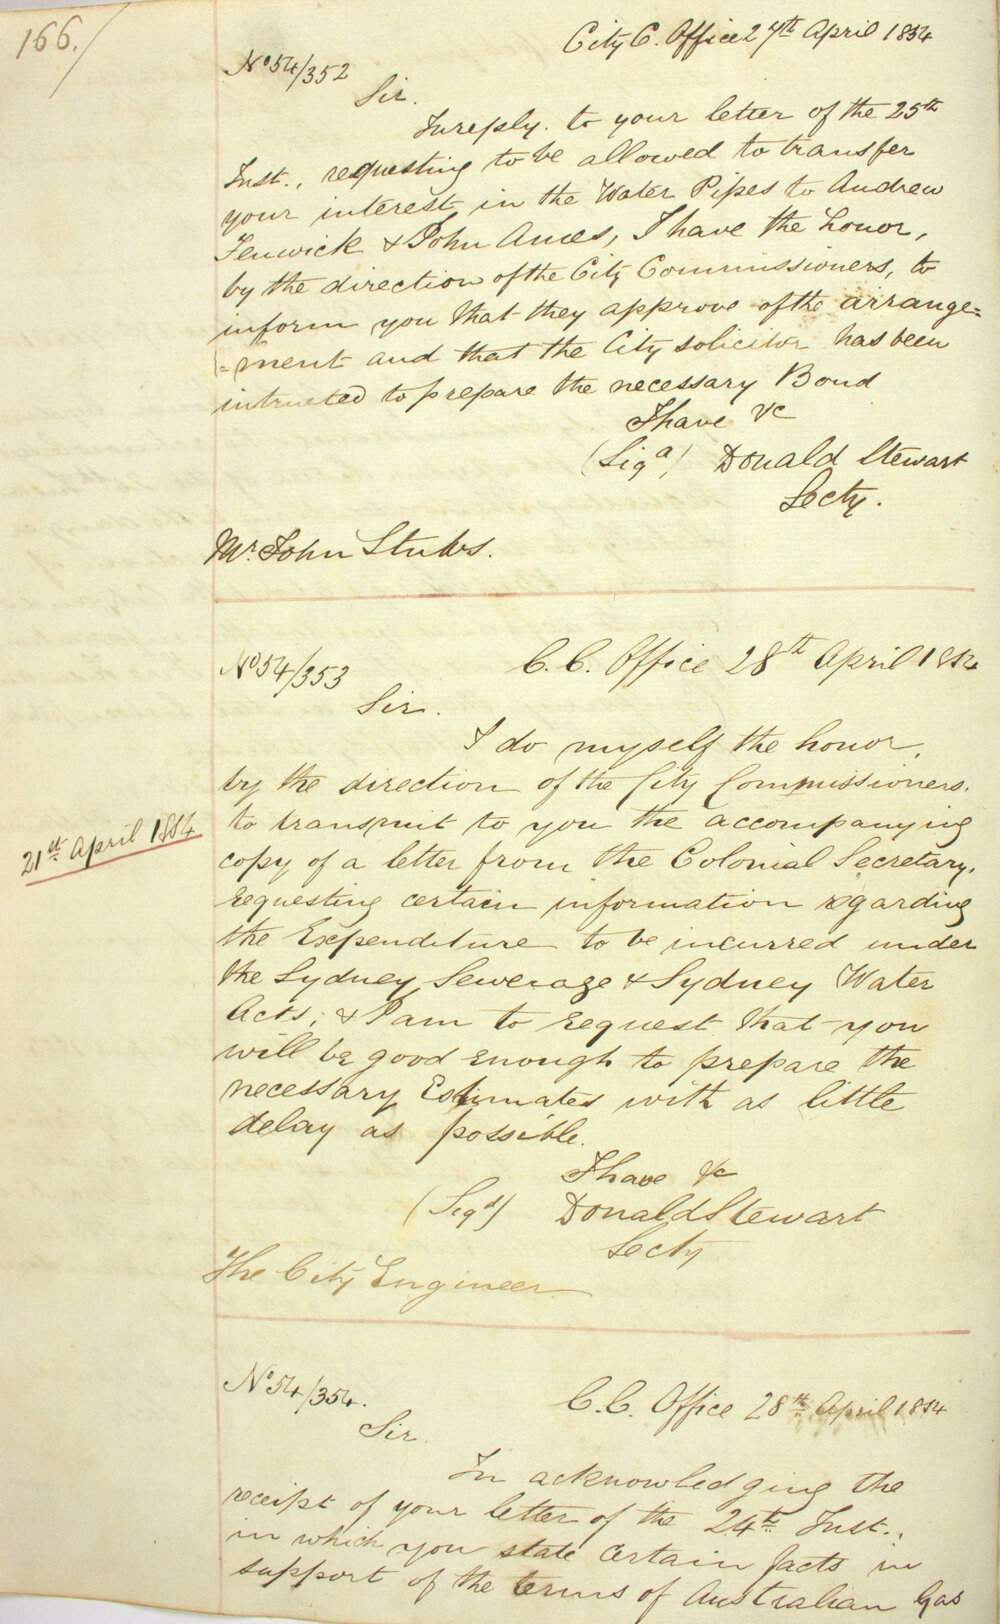 166.
City C. Office 27th April 1854
No 54/352
Sir.
In reply. to your letter of the 25th
Inst., requesting to be allowed to transfer
your interest in the Water Pipes to Andrew
Fenwick & John Ames, I have the honor,
by the direction of the City Commissioners, to
inform you that they approve of the arrange=
=ment and that the City solicitor has been
intructed to prepare the necessary Bond
I have &c
(Sigd) Donald Stewart
Secty.
Mr. John Stubbs.
No 54/353
C. C. Office 28th April 1854
Sir.
I do myself the honor,
by the direction of the City Commissioners.
21st April 1854
to transmit to you the accompanying
copy of a letter from the Colonial Secretary,
requesting certain information regarding
the Expenditure to be incurred under
the Sydney Sewerage & Sydney Water
Acts; & I am to request that you
will be good enough to prepare the
necessary Estimates with as little
delay as possible.
I have &c
(Sigd) Donald Stewart
Secty
The City Engineer
No 54/354.
C. C. Office 28th April 1854
Sir.
In acknowledging the
receipt of your letter of the 24th Inst.,
in which you state certain facts in
support of the terms of Australian Gas